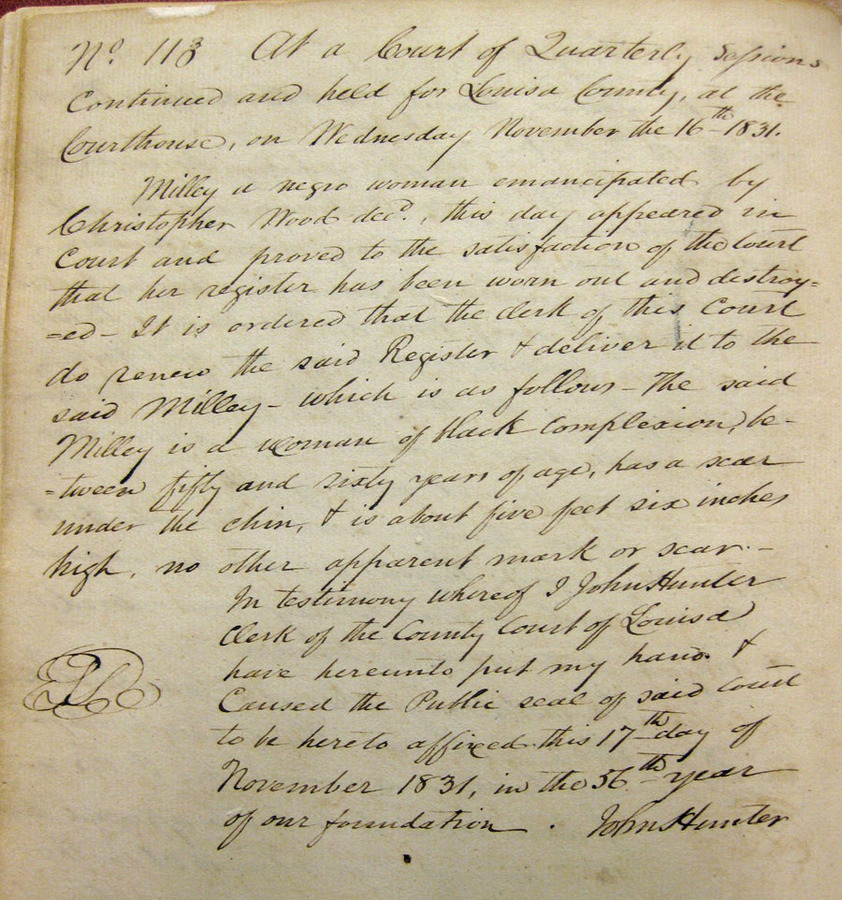 No. 113 At a Court of Quarterly Sessions
Continued and held for Louisa County, at the
Courthouse, on Wednesday November the 16th 1831.
Milley a negro woman emancipated by
Christopher Wood decd., this day appeared in
Court and proved to the satisfaction of the Court
that her register has been worn out and destroy=
=ed - It is ordered that the clerk of this Court
do renew the said Register & deliver it to the
said Milley - which is as follows - The said
Milley is a woman of black complexion, be-
=tween fifty and sixty years of age, has a scar
under the chin, & is about five feet six inches
high, no other apparent mark or scar. -
In testimony whereof I John Hunter
Clerk of the County Court of Louisa
have hereunto put my hand &
Caused the Public seal of said Court
to be hereto affixed this 17th day of
November 1831, in the 56th year
of our foundation. John Hunter